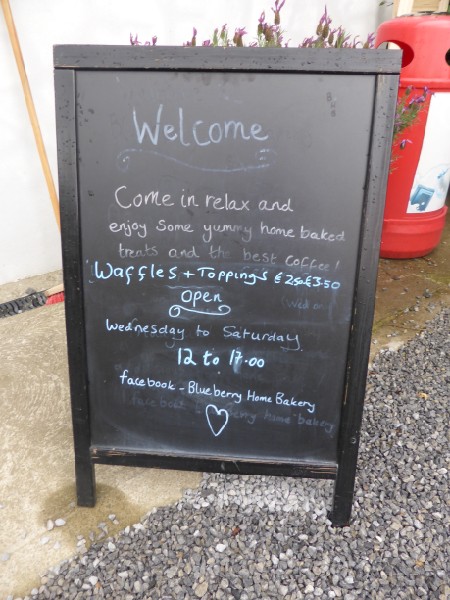 Welcome
Come in relax and
enjoy some yummy home baked
treats and the best coffee!
Waffles + Toppings € 2.50 € 3.50
Open
Wednesday to Saturday
12 to 17.00
facebook - Blueberry Home Bakery